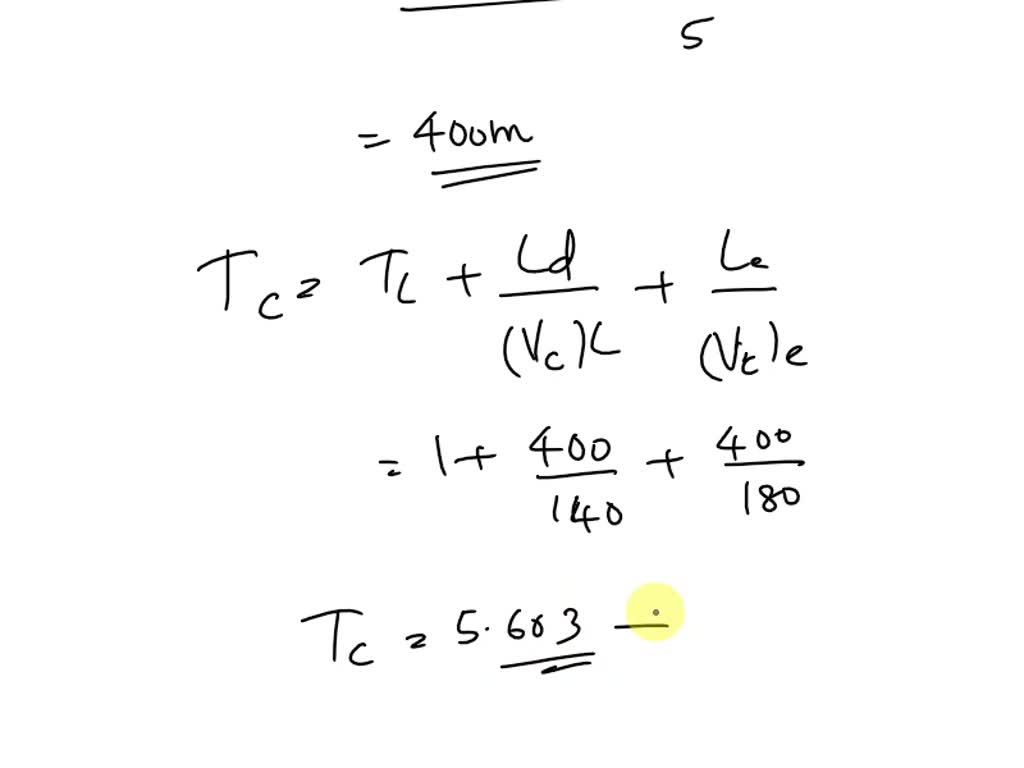 5
= 400m
Tc = TL + Ld/(Vc)L + Le/(Vt)e
= 1 + 400/140 + 400/180
Tc = 5.603 —